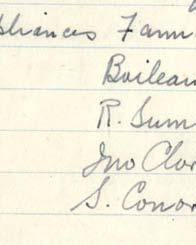 pliances Farm
Boilean
R. Sum
Jno Clor
S. Conor